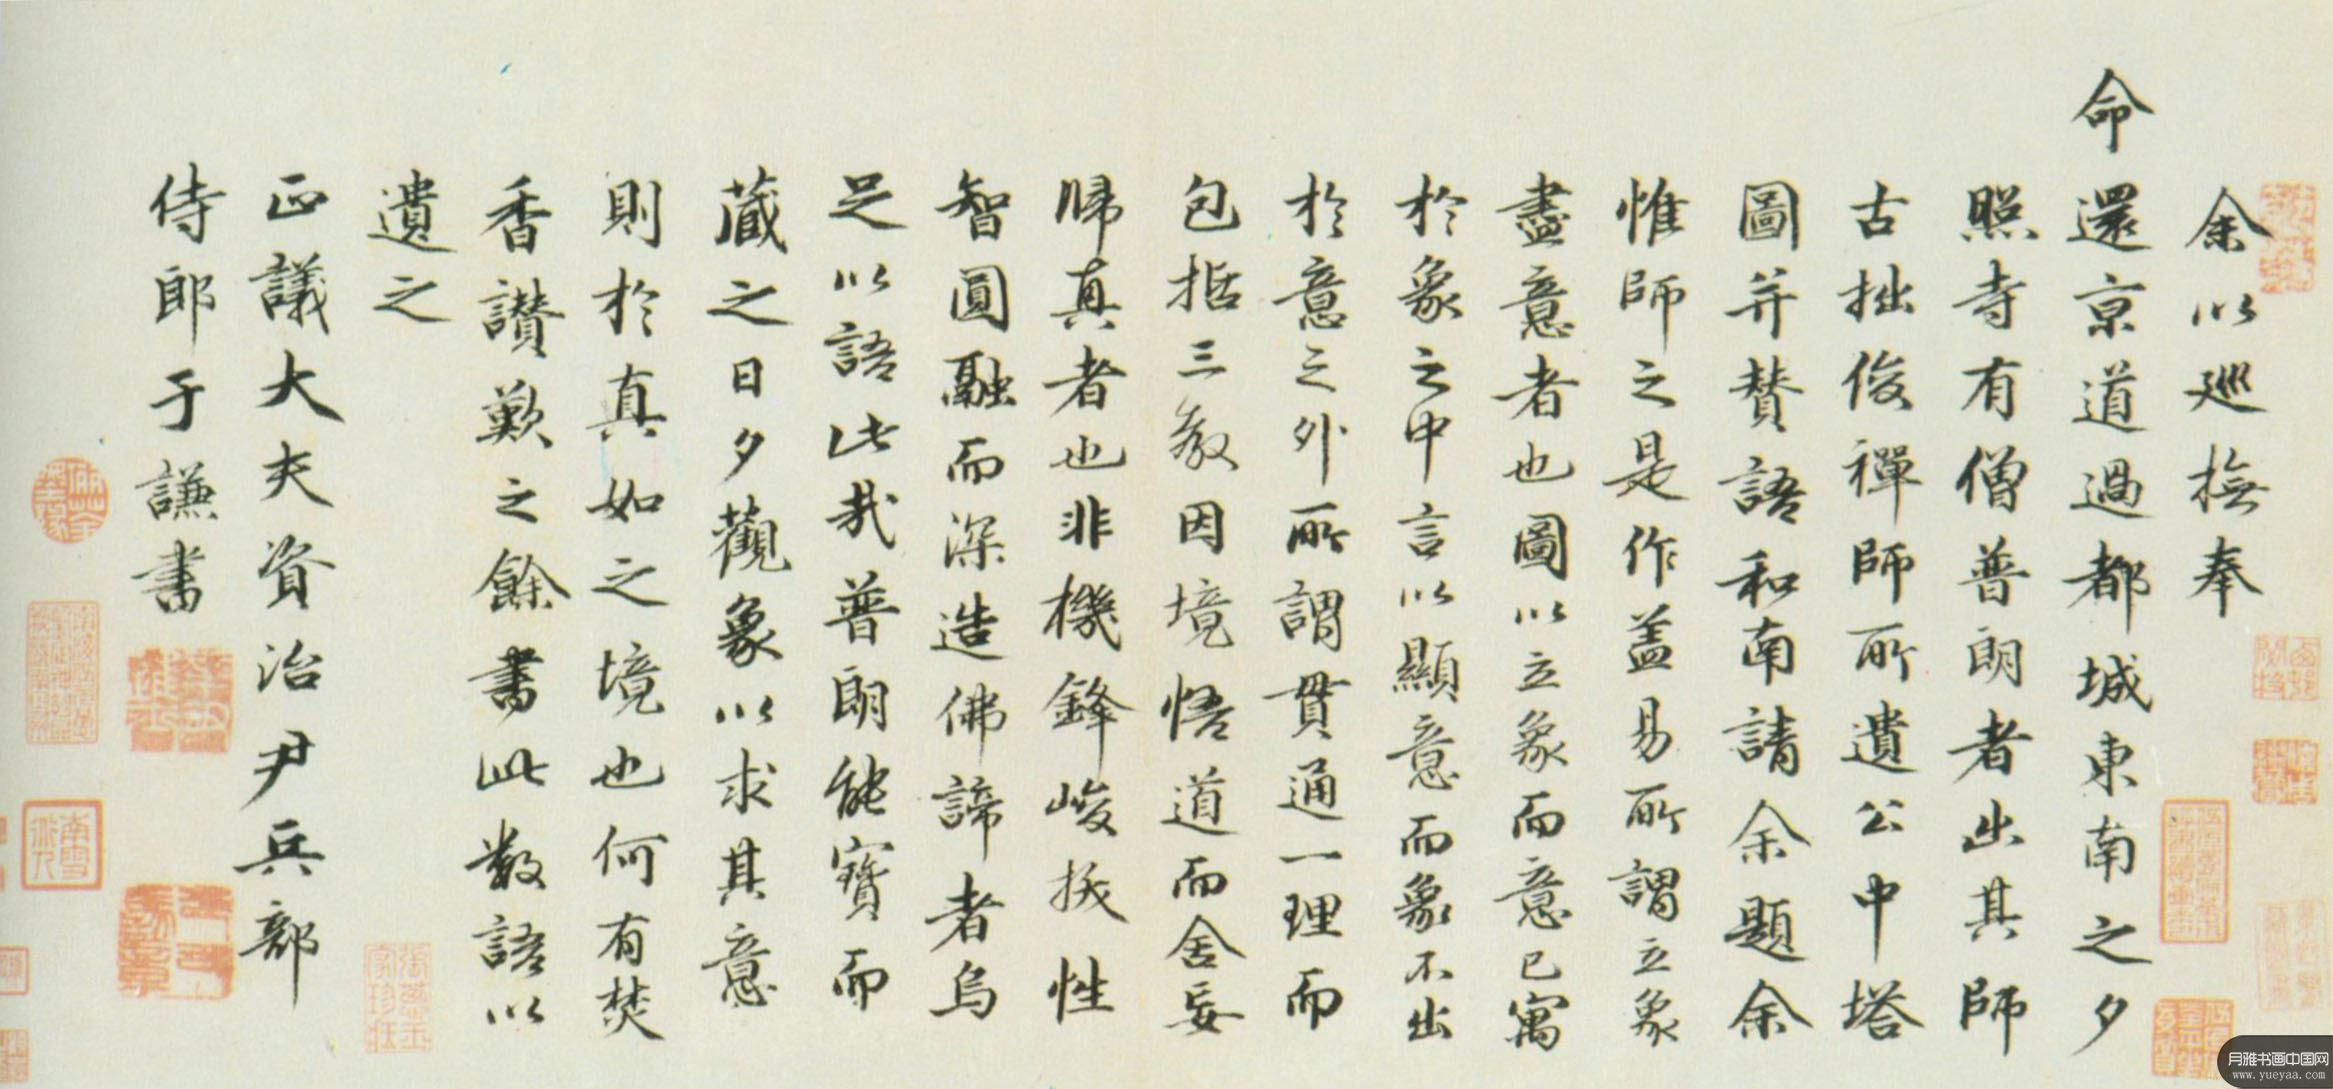 余以巡撫奉
命還京道過都城東南之夕
照寺有僧普朗者出其師
古拙俊禪師所遺公中塔
圖并贊語和南請余題余
惟師之是作盖易所謂立象
盡意者也圖以立象而意已寓
於象之中言以顯意而象不出
於意之外所謂貫通一理而
包括三教因境悟道而舍妄
歸真者也非機鋒峻拔性
智圓融而深造佛諦者烏
足以語此哉普朗能寶而
藏之日夕觀象以求其意
則於真如之境也何有焚
香讃歎之餘書此數語以
遺之
正議大夫資治尹兵部
侍郎于謙書
南雪
月雅书画中国网
www.yueyaa.com